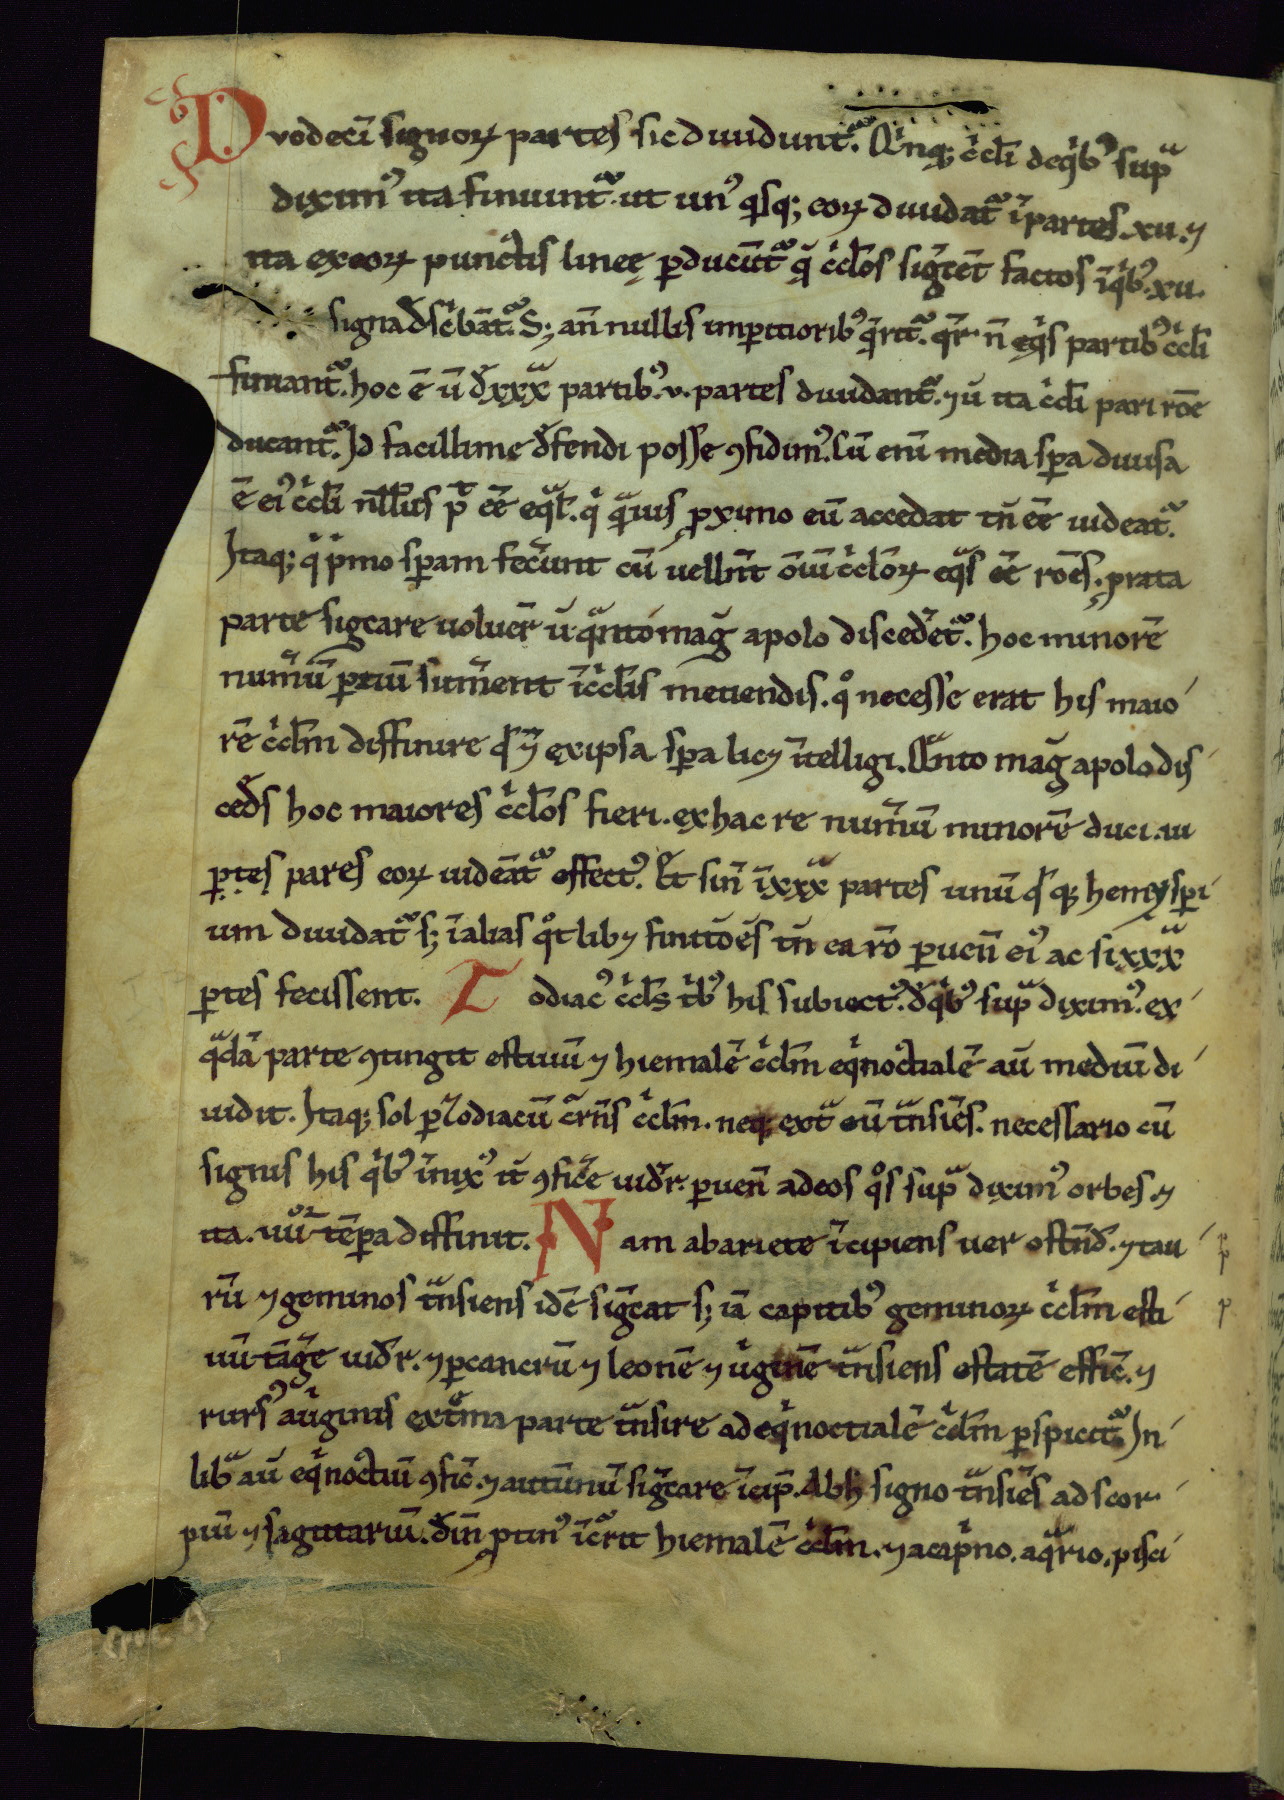 Duodecī signoꝝ partes sic diuidunt᷑. Qͥnq; cͥcl̄i deqͥbꝰ supͣ
diximꝰ ita finiunt᷑. ut unꝰ qͥsq; eoꝝ diuidat᷑ īpartes. xii. ⁊
ita exeoꝝ punctis lineę ꝑducūt᷑ q̄ cͥcl̄os sigcēt factos īqͥbꝰ. xii.
signa dͤscͥbāt᷑. S; an̄ nullis imꝑitioribꝰ qͥ̄rit᷑. qͣr̄ n̄ eqͥs partibꝰ cͥcl̄i
finiant᷑. hoc ē ū dͤ xxxͣ partibꝰ. v. partes diuidant᷑. ⁊ ū ita cͥcl̄i pari rōe
ducant᷑. Id facillime dͤfendi posse ꝯfidimꝰ. Cū enī media spera diuisa
ē eiꝰ cͥcl̄i nll̄ius pͭ eē eqͣl̄. qͥ qͣuis ꝓximo eū accedat tn̄ eē uideat᷑.
Itaq; qͥ pͥmo speram fecͬunt cū uellnt̄ ōīū cͥcl̄oꝝ eqͣs eē rōes. ꝓrata
parte sigcare uoluer̄ ū qͣnto mag̊ apolo discedͤet᷑. hoc minorē
numͬū ꝑtiū sumͬent īcͥcl̄is metiendis. qͦ necesse erat his maio
rē cͥcl̄m diffinire qͥ̄ ⁊̄ exipsa spera lic⁊ ītelligi. Qͣnto mag̊ apolo dis
cedͤs hoc maiores cͥcl̄os fieri. exhac re numͬū minorē duci. ui
ꝑtes pares eoꝝ uideāt᷑ effectꝰ. Et sin̄ īxxxͣ partes unū qͥ̄q; hemysperi
um diuidat᷑ s; īalias qͦt lib⁊ finitiōes tn̄ ea rō ꝑuen̄ eiꝰ ac si xxxͣ
ꝑtes fecissent. Zodiacꝰ cͥcl̄s tͥbꝰ his subiectꝰ. dͤqͥbꝰ supͣ diximꝰ. ex
qͣdā parte ꝯtingit estiuū ⁊ hiemalē cͥcl̄m eqͥnoctialē aū mediū di
uidit. Itaq; sol ꝑ Zodiacū cͬrn̄s cͥcl̄m. neq; extͣ eū tͣnsiēs. necessario cū
signis his qͥbꝰ īnixꝰ it̄ ꝯficͬe uidr̄. ꝑuen̄ adeos qͦs supͣ diximꝰ orbes. ⁊
ita. iiiiᵒʳ tēpera diffinit. Nam abariete īcipiens uer ostn̄d̄. ⁊ tau
rū ⁊ geminos tͣnsiens idē sigcat s; iā capitibꝰ geminoꝝ cͥcl̄m esti
uū tāgͬe uidr̄. ⁊ ꝑcancrū ⁊ leonē ⁊ uͥginē tͣnsiens estatē effic̄. ⁊
rursꝰ auͥginis extͤma parte tͣnsire ad eqͥnoctialē cͥcl̄m ꝑspicit᷑. In
libͣ aū eqͥnoctiū ꝯfic̄. ⁊ autūnū sigcare īcip̄. Abh̄ signo tͣnsiēs ad scor
piū ⁊ sagittariū. dͤin̄ ꝓtinꝰ īcͬrit hiemalē cͥcl̄m. ⁊ acapͥno. aqͣrio. pisci